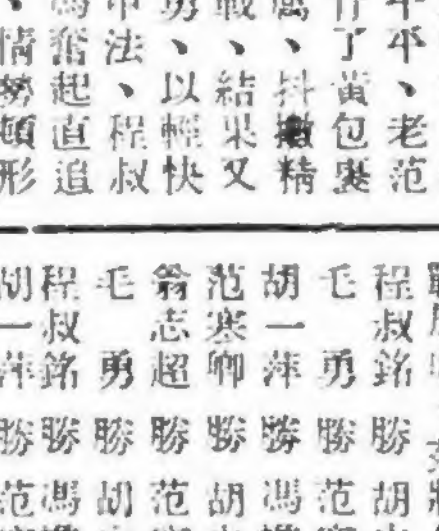 平、老范
了黃包裹
厲、抖擻精
戰、結果又
勇、以輕快
法、程叔
馮奮起直追
、情勢頓形
程叔銘勝胡
毛勇勝范
胡一萍勝馮
范寒卿勝胡
翁志超勝范
毛勇勝胡
程叔銘勝馮
胡一萍勝范